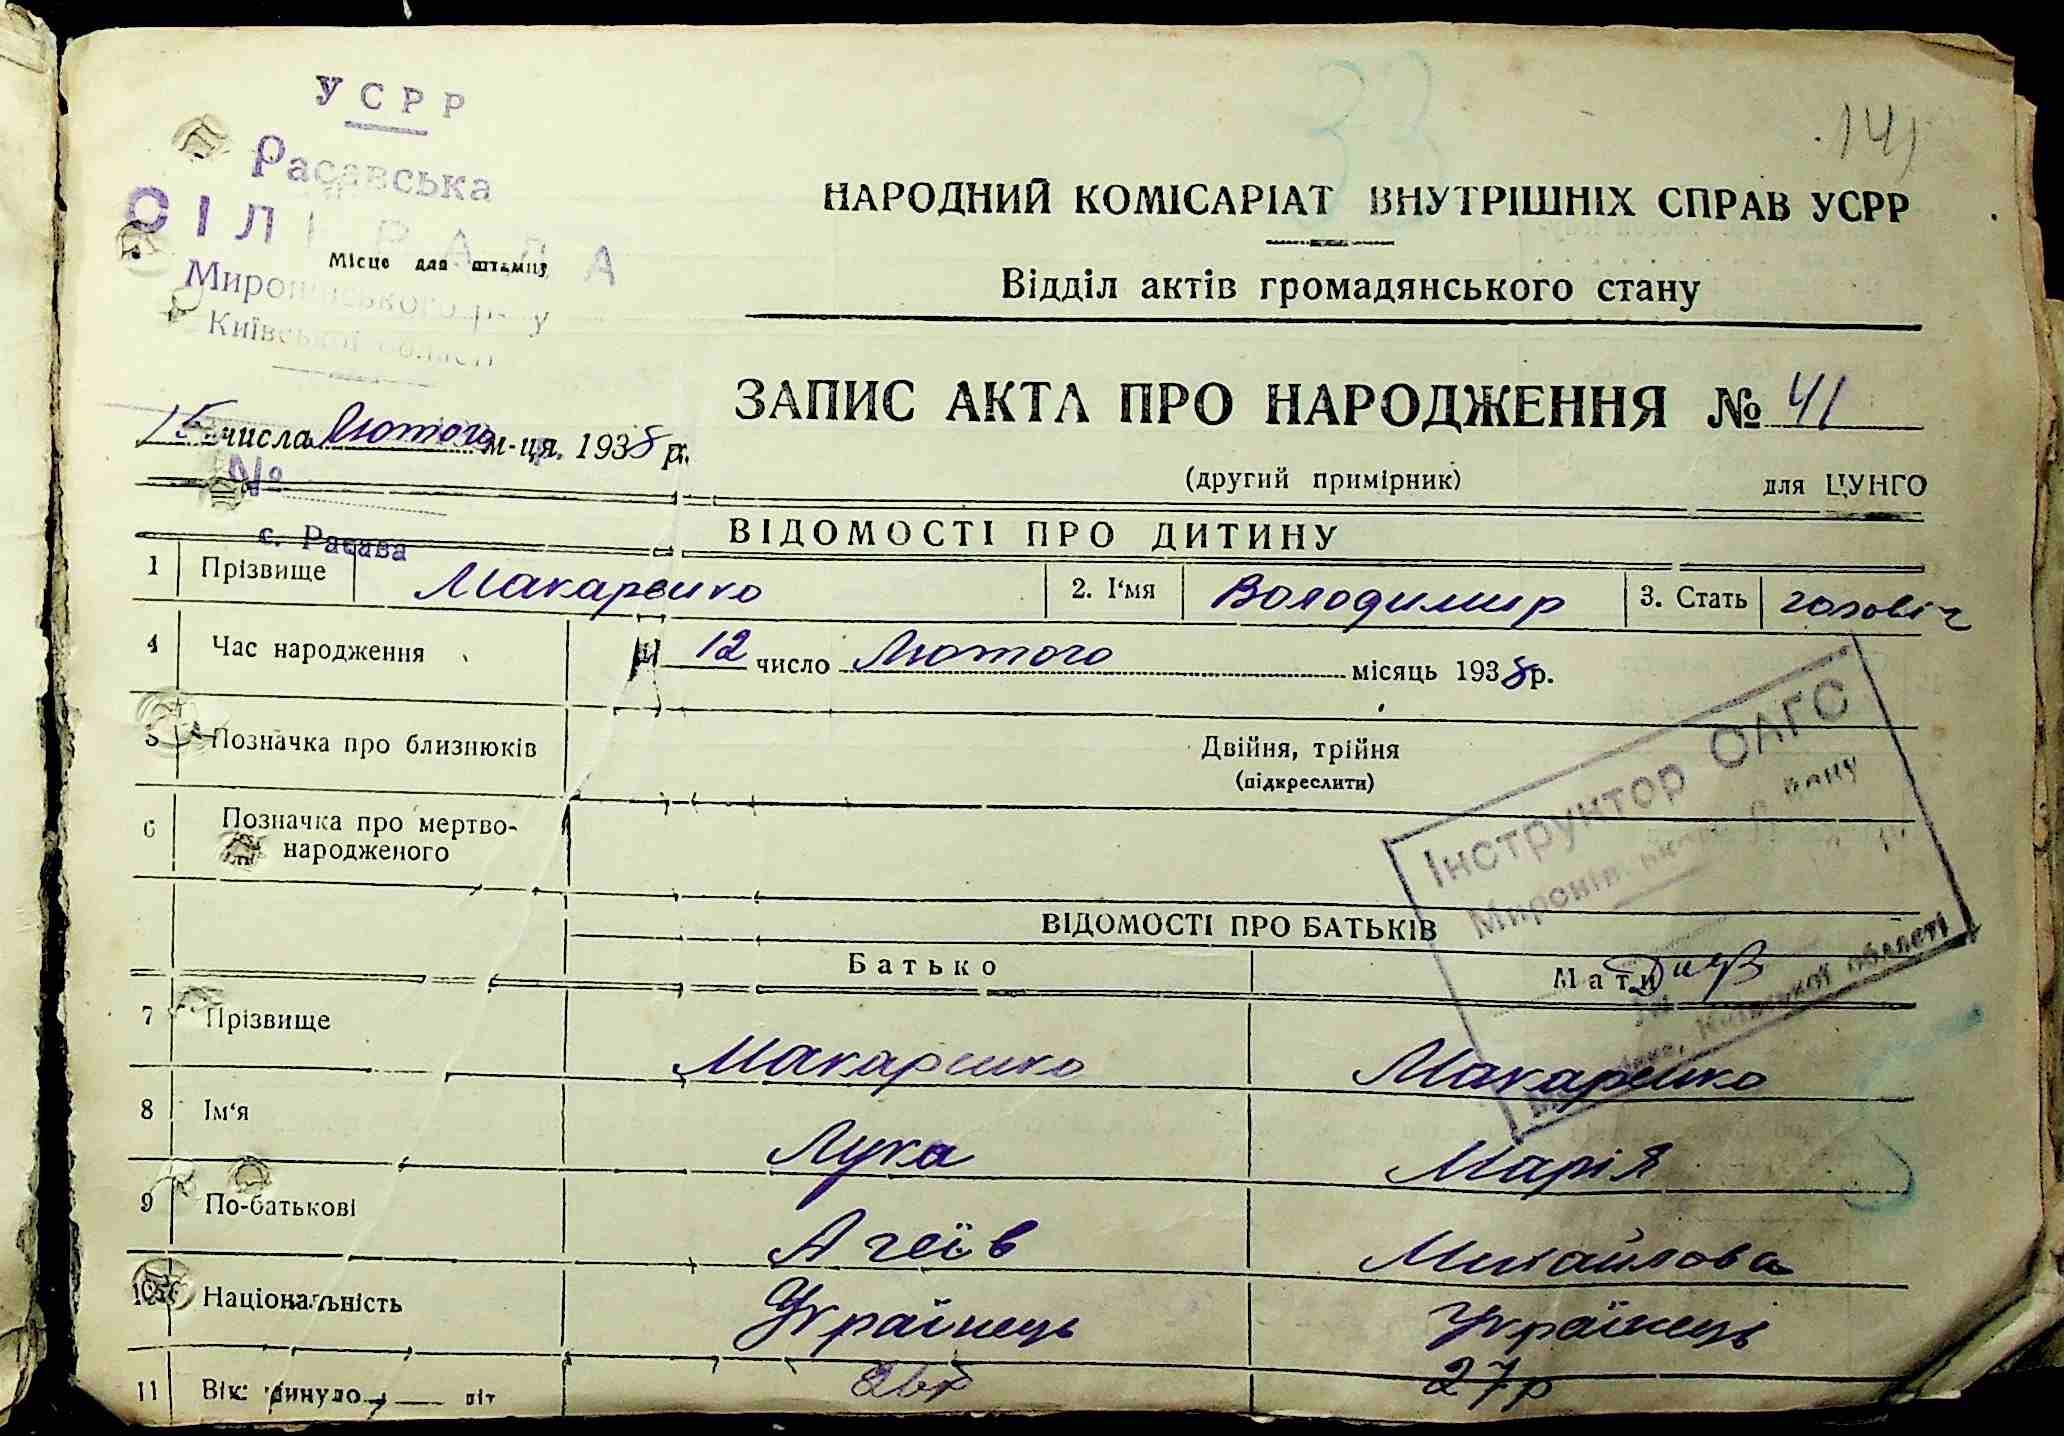 УСРР
Расавська
СІЛЬРАДА
Місце для штампу
Миронівського р-ну
Київської області
33
141
НАРОДНИЙ КОМІСАРІАТ ВНУТРІШНІХ СПРАВ УСРР
Відділ актів громадянського стану
ЗАПИС АКТА ПРО НАРОДЖЕННЯ № 41
15 числа Лютого м-ця. 1938 р.
(другий примірник) для ЦУНГО
№
с. Расава
ВІДОМОСТІ ПРО ДИТИНУ
1 Прізвище Макаренко 2. І'мя Володимир 3. Стать чоловіч
4 Час народження 12 число Лютого місяць 1938 р.
5 Позначка про близнюків Двійня, трійня
(підкреслити)
6 Позначка про мертво-
народженого
Інструктор ОАГС
Миронівського району
Київської області
ВІДОМОСТІ ПРО БАТЬКІВ
Батько Мати
7 Прізвище Макаренко Макаренко
8 Ім'я Лука Марія
9 По-батькові Агеїв Михайлова
10 Національність Українець Українець
11 Вік: минуло літ 27р